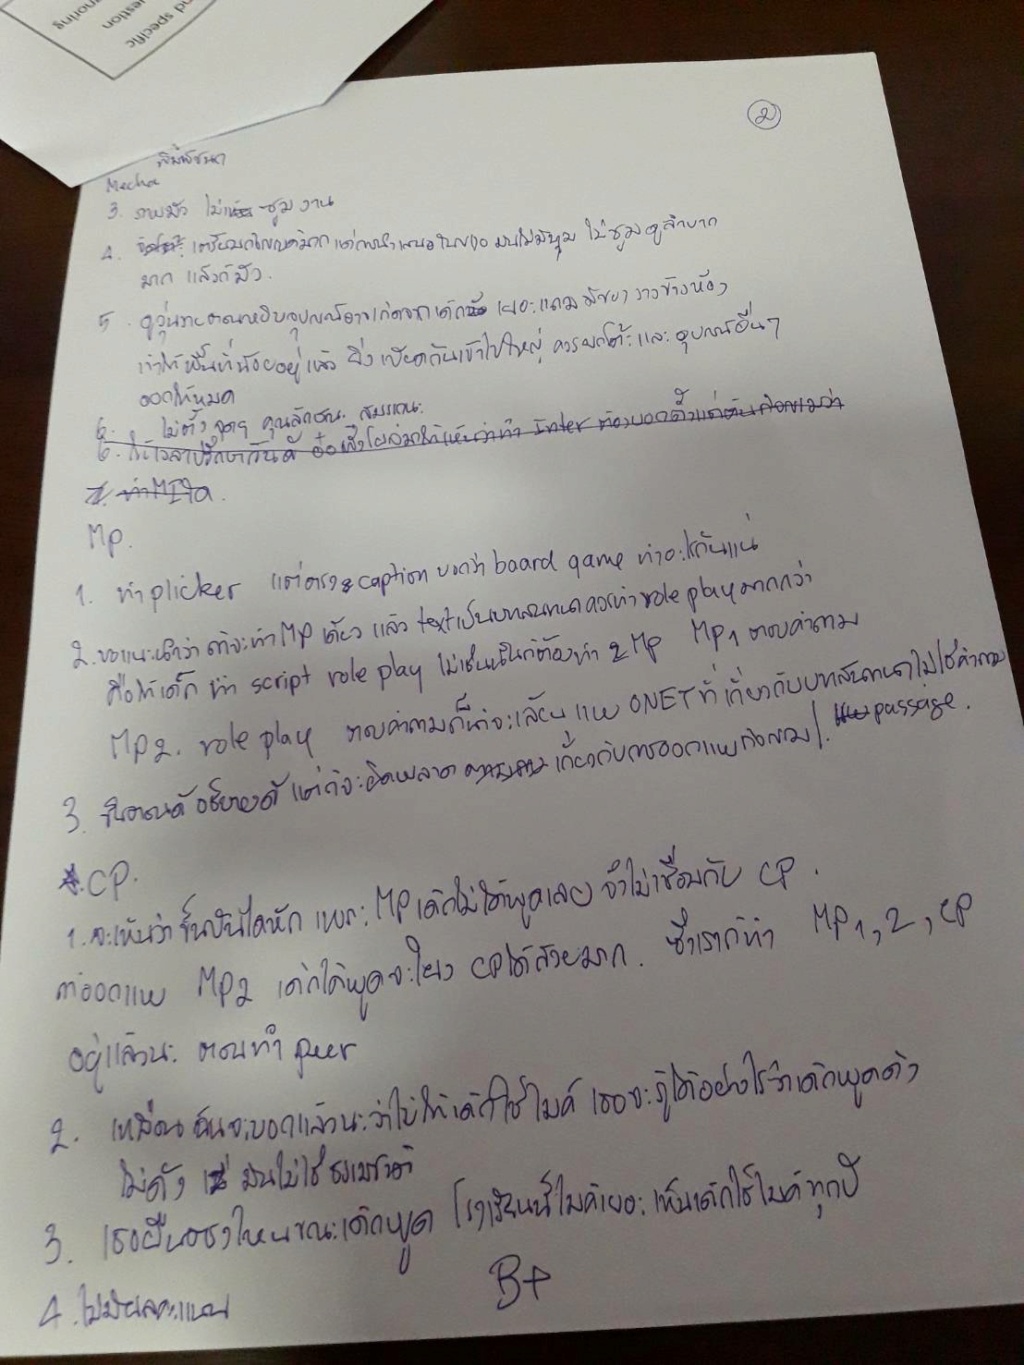 nd specific
uestion
gnoring
2
พิมพ์ชนก
Mecha
3. ภาพมัว ไม่ ซูม งาน
4. เตรียมกิจกรรมดีมาก แต่การนำเสนอใบงาน มันไม่มีซูม ไม่ซูม ดูลำบาก
มาก แล้วก็มัว.
5. ดูวุ่นวายตอนหยิบอุปกรณ์อาจเกิดจากเด็ก เยอะแถมมีของวางข้างห้อง
ทำให้พื้นที่น้อยอยู่แล้ว ยิ่งเบียดกันเข้าไปใหญ่ ควรยกโต๊ะ และ อุปกรณ์อื่นๆ
ออกให้หมด
6. ไม่ตั้งจุดๆ คุณลักษณะ สมรรถนะ
6. Inter ต้องบอกตั้งแต่ต้น
MP.
1. ทำ plicker แต่ตรง caption บอกว่า board game ทำอะไรกันแน่
2. ขอแนะนำว่า ถ้าจะทำ MP เดียว แล้ว text เป็นบทสนทนาควรทำ role play มากกว่า
คือให้เด็ก ทำ script role play ไม่เช่นนั้นก็ต้องทำ 2 MP MP1 ตอบคำถาม
MP2. role play ตอบคำถามก็น่าจะเลียนแบบ ONET ที่เกี่ยวกับบทสนทนา ไม่ใช่คำถาม
passage.
3. ขั้นตอนดี อธิบายดี แต่ก็จะผิดพลาด เกี่ยวกับการออกแบบกิจกรรม
CP.
1. จะเห็นว่า ขั้นบันไดหัก เพราะ MP เด็กไม่ได้พูดเลย จึงไม่เชื่อมกับ CP.
ถ้าออกแบบ MP2 เด็กได้พูดจะโยง CP ได้สวยมาก. ซึ่งเราก็ทำ MP1, 2, CP
อยู่แล้วนะ ตอนทำ peer
2. เหมือนฉันจะบอกแล้วนะว่าไม่ให้เด็กใช้ไมค์ เธอจะรู้ได้อย่างไรว่าเด็กพูดดัง
ไม่ดัง มันไม่ใช่ธรรมชาติ
3. เธอยืนตรงไหนขณะเด็กพูด โรงเรียนนี้ไมค์เยอะ เห็นเด็กใช้ไมค์ทุกปี
4. ไม่มีผลคะแนน
B+